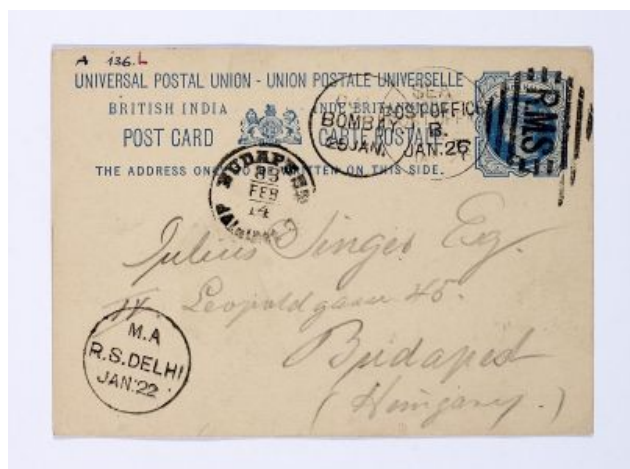 A 136.L
UNIVERSAL POSTAL UNION - UNION POSTALE UNIVERSELLE
BRITISH INDIA
POST CARD
THE ADDRESS ONLY TO BE WRITTEN ON THIS SIDE.
BOMBAY
25 JAN.
SEA
POST OFFICE
B.
JAN. 26
RMS
BUDAPEST
83
FEB
14
Julius Singer Esq.
IV. Leopoldgasse 45.
Budapest
(Hungary.)
M.A
R.S. DELHI
JAN. 22